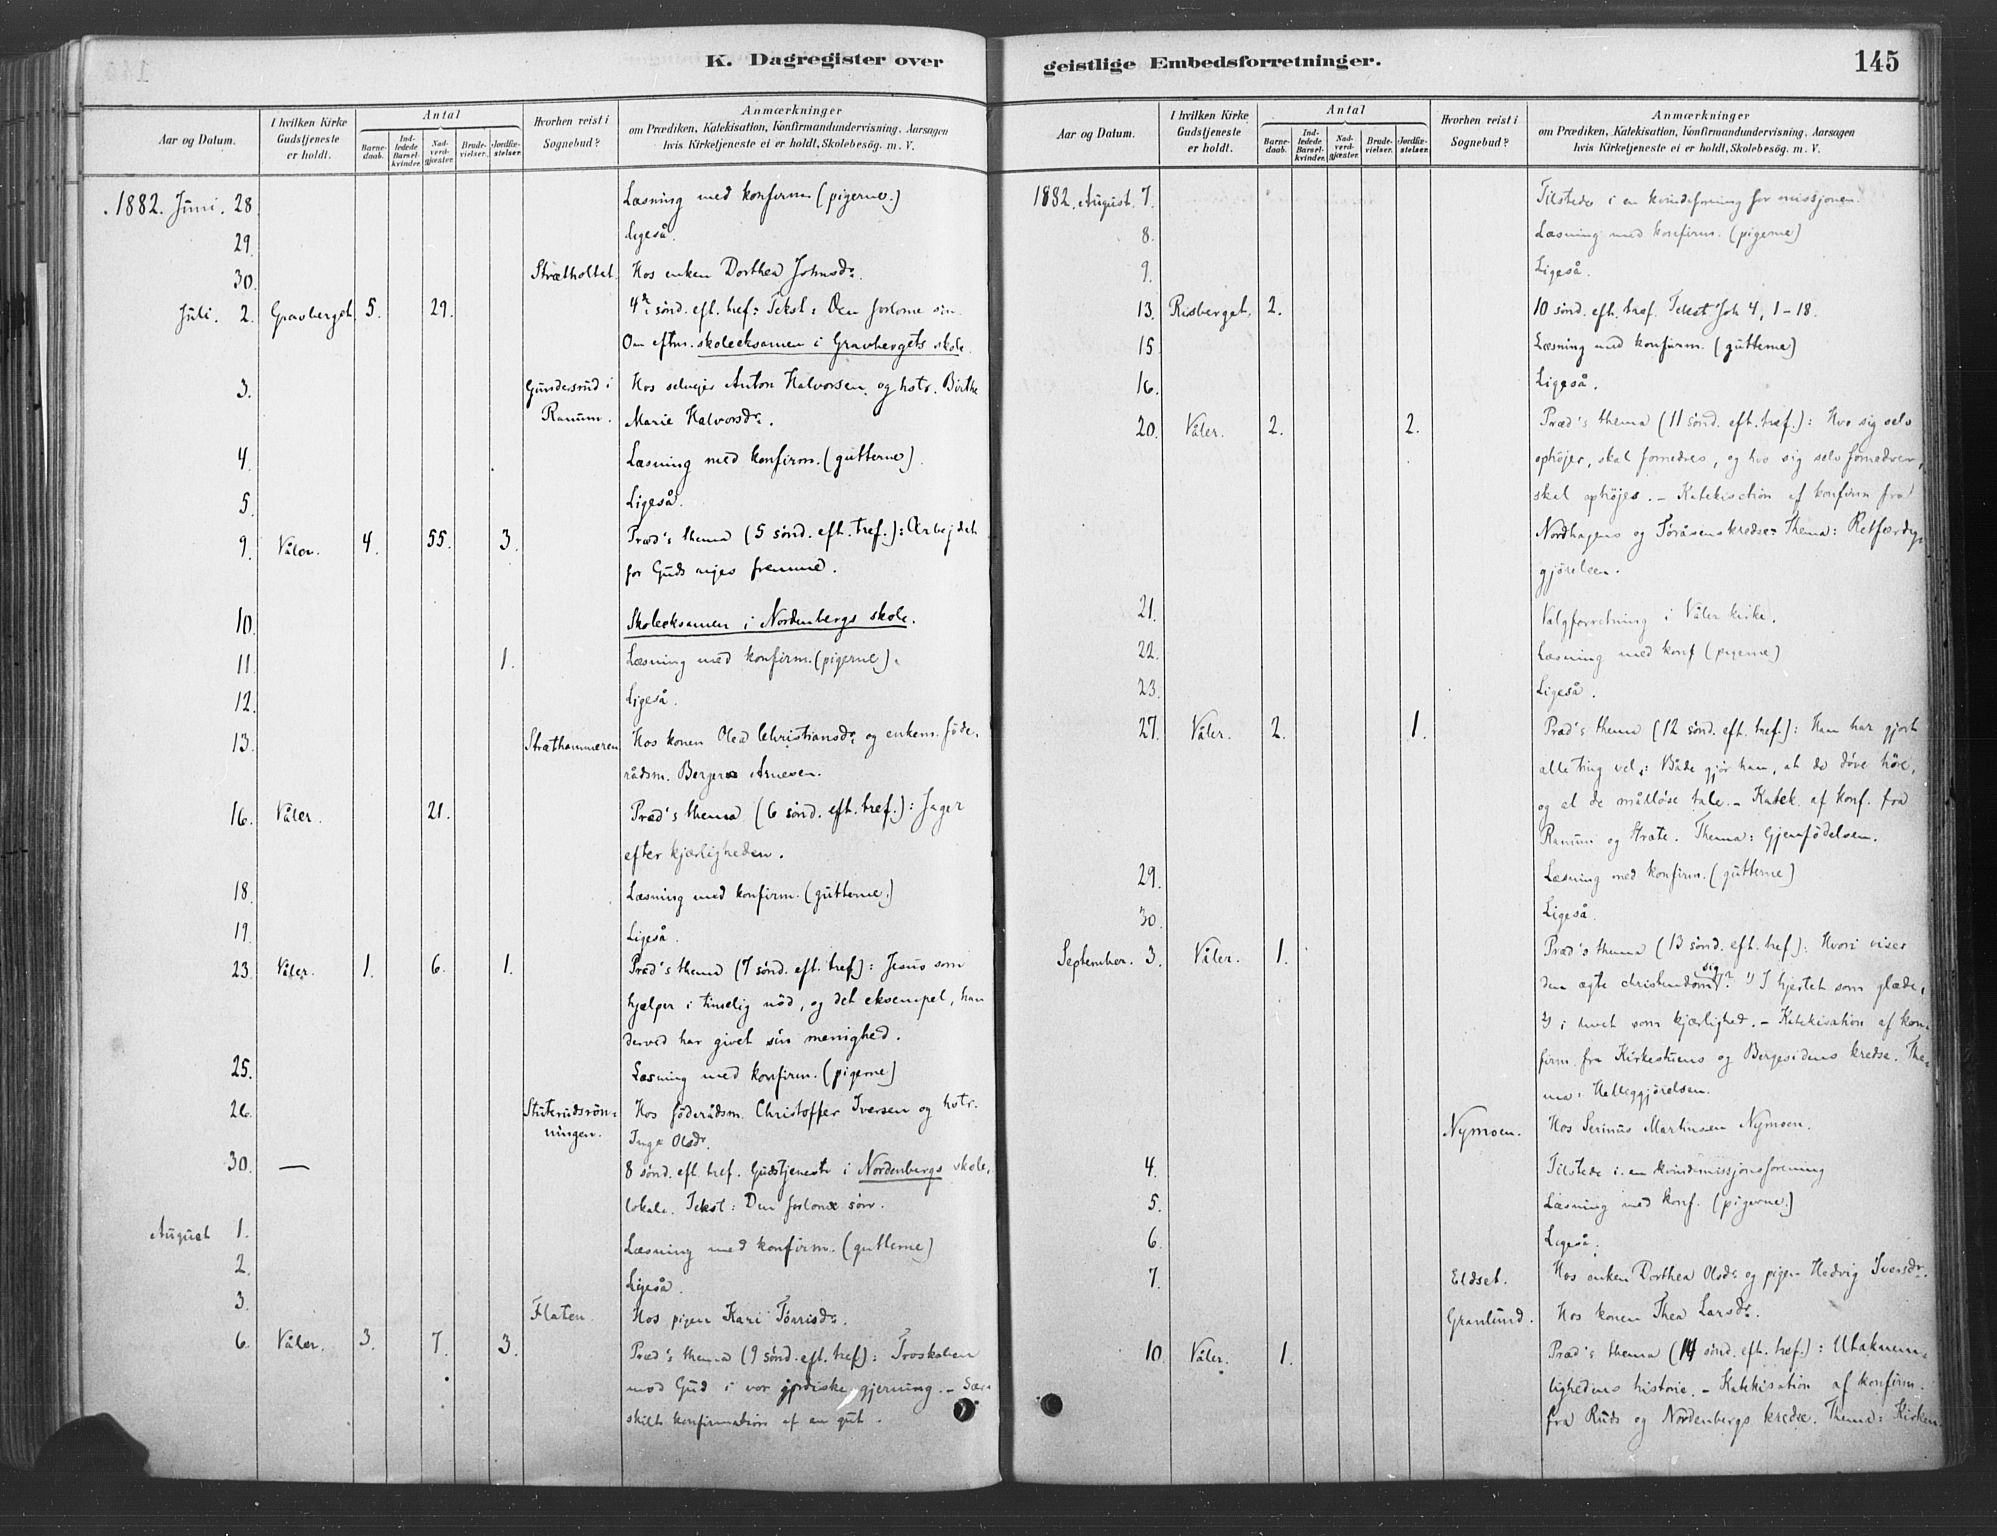 K. Dagregister over
Aar og Datum.
I hvilken Kirke Gudstjeneste er holdt.
Antal
Barne-daab.
Ind-ledede Barsel-kvinder.
Nad-verd-gjæster.
Brude-vielser.
Jordfæ-stelser.
Hvorhen reist i Sognebud?
Anmærkninger
om Prædiken, Katekisation, Konfirmandundervisning, Aarsagen
hvis Kirketjeneste ei er holdt, Skolebesøg. m. V.
1882. Juni. 28 Læsning med konfirm. (pigerne.)
29. Ligeså.
30. Strætholtet. Hos enken Dorthea Johnsdr.
Juli. 2. Gravberget. 5. 29. 4de sönd. eft. tref. Tekst: Den forlorne sön.
Om eftm. skoleeksamen i Gravbergets skole.
3. Gundersrud i Hos selvejer Anton Halvorsen og hstr. Birthe
Ranum. Marie Halvorsdr.
4. Læsning med konfirm. (gutterne).
5. Ligeså.
9. Våler. 4. 55. 3. Præd's thema (5 sönd. eft. tref.): Arbejdet
for Guds riges fremme.
10. Skoleeksamen i Nordenbergs skole.
11. 1. Læsning med konfirm. (pigerne).
12. Ligeså.
13. Stræthammeren Hos konen Olea Christiansdr. og enkem. föde-
rådsm. Berger Arnesen.
16. Våler. 21. Præd's thema (6 sönd. eft. tref.): Jager
efter kjærligheden.
18. Læsning med konfirm. (gutterne.)
19. Ligeså.
23. Våler. 1. 6. 1. Præd's thema (7 sönd. eft. tref.): Jesus som
hjælper i timelig nöd, og det eksempel, han
derved har givet sin menighed.
25. Læsning med konfirm. (pigerne)
26. Stuterudsrön- Hos föderådsm. Christoffer Iversen og hstr.
ningen. Inge Olsdr.
30. — 8 sönd. eft. tref. Gudstjeneste i Nordenbergs skole-
lokale. Tekst: Den forlorne sön.
August 1. Læsning med konfirm. (gutterne)
2. Ligeså.
3. Flaten. Hos pigen Kari Törrisdr.
6. Våler. 3. 7. 3. Præd's thema (9 sönd. eft. tref.): Troskaben
mod Gud i vor jordiske gjerning. – Sær-
skilt konfirmation af en gut.
geistlige Embedsforretninger.
145
Aar og Datum.
I hvilken Kirke Gudstjeneste er holdt.
Antal
Barne-daab.
Ind-ledede Barsel-kvinder.
Nad-verd-gjæster.
Brude-vielser.
Jordfæ-stelser.
Hvorhen reist i Sognebud?
Anmærkninger
om Prædiken, Katekisation, Konfirmandundervisning, Aarsagen
hvis Kirketjeneste ei er holdt, Skolebesøg. m. V.
1882. August. 7. Tilstede i en kvindeforening for missjonen.
8. Læsning med konfirm. (pigerne)
9. Ligeså.
13. Risberget. 2. 10 sönd. eft. tref. Tekst Joh 4, 1–18.
15. Læsning med konfirm. (gutterne)
16. Ligeså.
20. Våler. 2. 2. Præd's thema (11 sönd. eft. tref.): Hvo sig selv
ophöjer, skal fornedres, og hvo sig selv fornedrer,
skal ophöjes. – Katekisation af konfirm fra
Nordhagens og Toråsens kredse. Thema: Retfærdig-
gjörelsen.
21. Valgforretning i Våler kirke.
22. Læsning med konf (pigerne)
23. Ligeså.
27. Våler. 2. 1. Præd's thema (12 sönd. eft. tref.): Han har gjort
alle ting vel: Både gjör han, at de döve höre,
og at de målløse tale. – Katek. af konf. fra
Ranum og Stræte. Thema: Gjenfödelsen.
29. Læsning med konfirm. (gutterne)
30. Ligeså.
September. 3. Våler. 1. Præd's thema (13 sönd. eft. tref.): Hvori viser
den ægte christendom sig? 1) I hjertet som glæde,
2) i livet som kjærlighed. – Katekisation af kon-
firm. fra Kirkestuens og Bergesidens kredse. The-
ma: Helliggjörelsen.
Nymoen. Hos Serinus Martinsen Nymoen.
4. Tilstede i en kvindemissjonsforening
5. Læsning med konf. (pigerne)
6. Ligeså.
7. Eldset. Hos enken Dorthea Olsdr. og pigen Hedvig Iversdr.
Granlund. Hos konen Thea Larsdr.
10. Våler. 1. Præd's thema (14 sönd. eft. tref.): Utaknem-
lighedens historie. – Katekisation af konfirm.
fra Ruds og Nordenbergs kredse. Thema: Kirken.